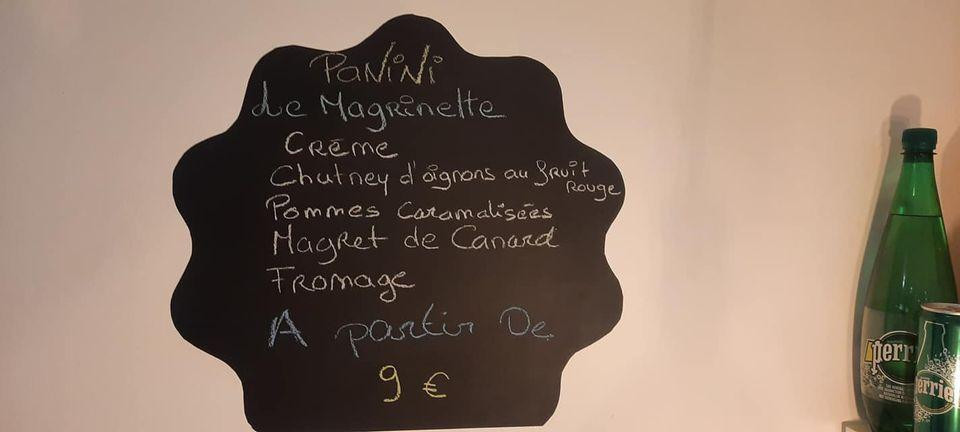 PaNiNi
Le Magrinette
Crème
Chutney d'oignons au fruit
Rouge
Pommes Caramalisées
Magret de Canard
Fromage
A partir De
9 €
perri
errie